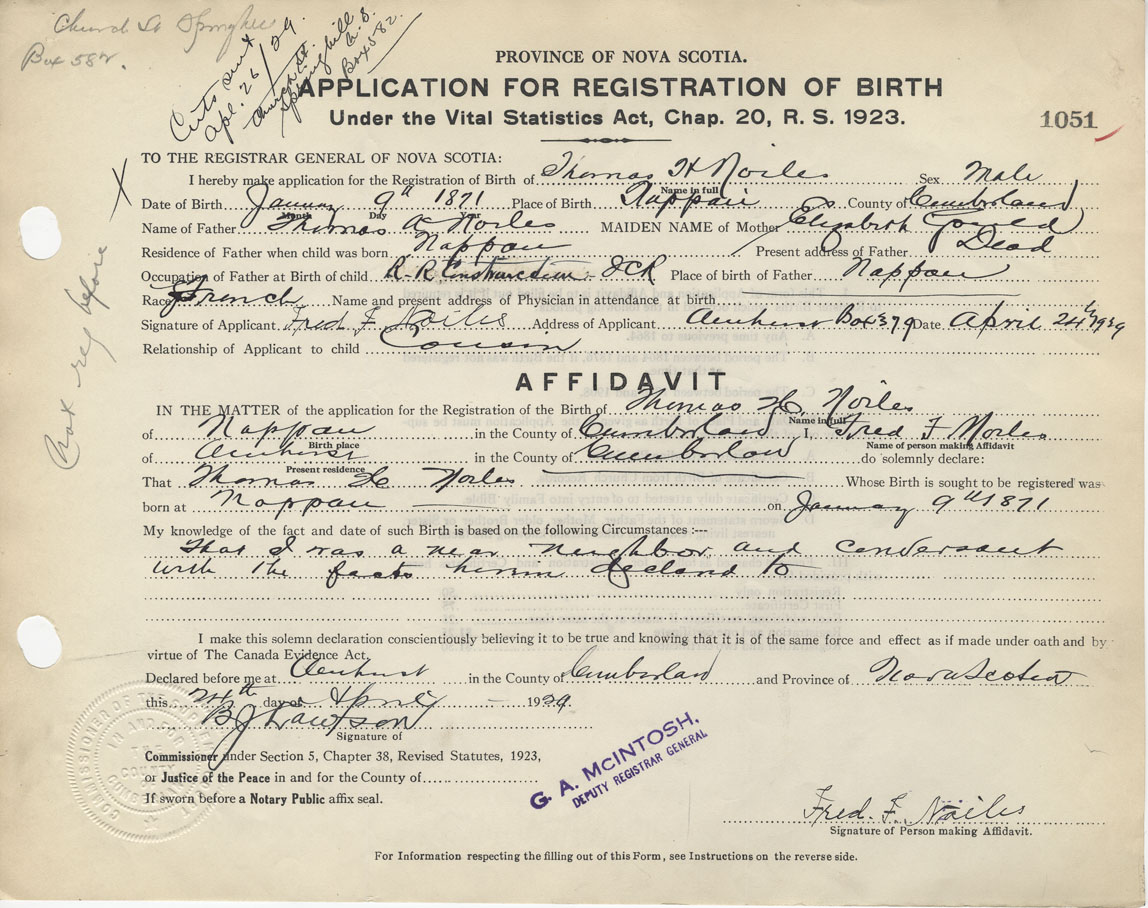 Church St Springhill
Box 582.
Certs sent
Apl. 26/29.
Church St.
Springhill
N.S.
Box 582.
PROVINCE OF NOVA SCOTIA.
APPLICATION FOR REGISTRATION OF BIRTH
Under the Vital Statistics Act, Chap. 20, R. S. 1923.
1051
X
TO THE REGISTRAR GENERAL OF NOVA SCOTIA:
I hereby make application for the Registration of Birth of Thomas H Noiles Sex Male
Name in full
Date of Birth January 9th 1871 Place of Birth Nappan County of Cumberland
Month Day Year
Name of Father Thomas A Noiles MAIDEN NAME of Mother Elizabeth Gould
Residence of Father when child was born Nappan Present address of Father Dead
Occupation of Father at Birth of child R. R Construction - ICR Place of birth of Father Nappan
Race French Name and present address of Physician in attendance at birth
Signature of Applicant Fred F Noiles Address of Applicant Amherst Box 379 Date April 24th 1929
Relationship of Applicant to child Couson
not reg before
AFFIDAVIT
IN THE MATTER of the application for the Registration of the Birth of Thomas H. Noiles
Name in full
of Nappan in the County of Cumberland I, Fred F Noiles
Birth place Name of person making Affidavit
of Amherst in the County of Cumberland do solemnly declare:
Present residence
That Thomas H Noiles Whose Birth is sought to be registered was
born at Nappan on January 9th 1871
My knowledge of the fact and date of such Birth is based on the following Circumstances :---
That I was a near neighbor and condersant
with the facts herein declard to
I make this solemn declaration conscientiously believing it to be true and knowing that it is of the same force and effect as if made under oath and by
virtue of The Canada Evidence Act.
Declared before me at Amherst in the County of Cumberland and Province of Nova Scotia
this 24th day of April 1929.
B J Lawson
Signature of
Commissioner under Section 5, Chapter 38, Revised Statutes, 1923,
or Justice of the Peace in and for the County of
If sworn before a Notary Public affix seal.
G. A. McINTOSH,
DEPUTY REGISTRAR GENERAL
Fred. F. Noiles
Signature of Person making Affidavit.
For Information respecting the filling out of this Form, see Instructions on the reverse side.